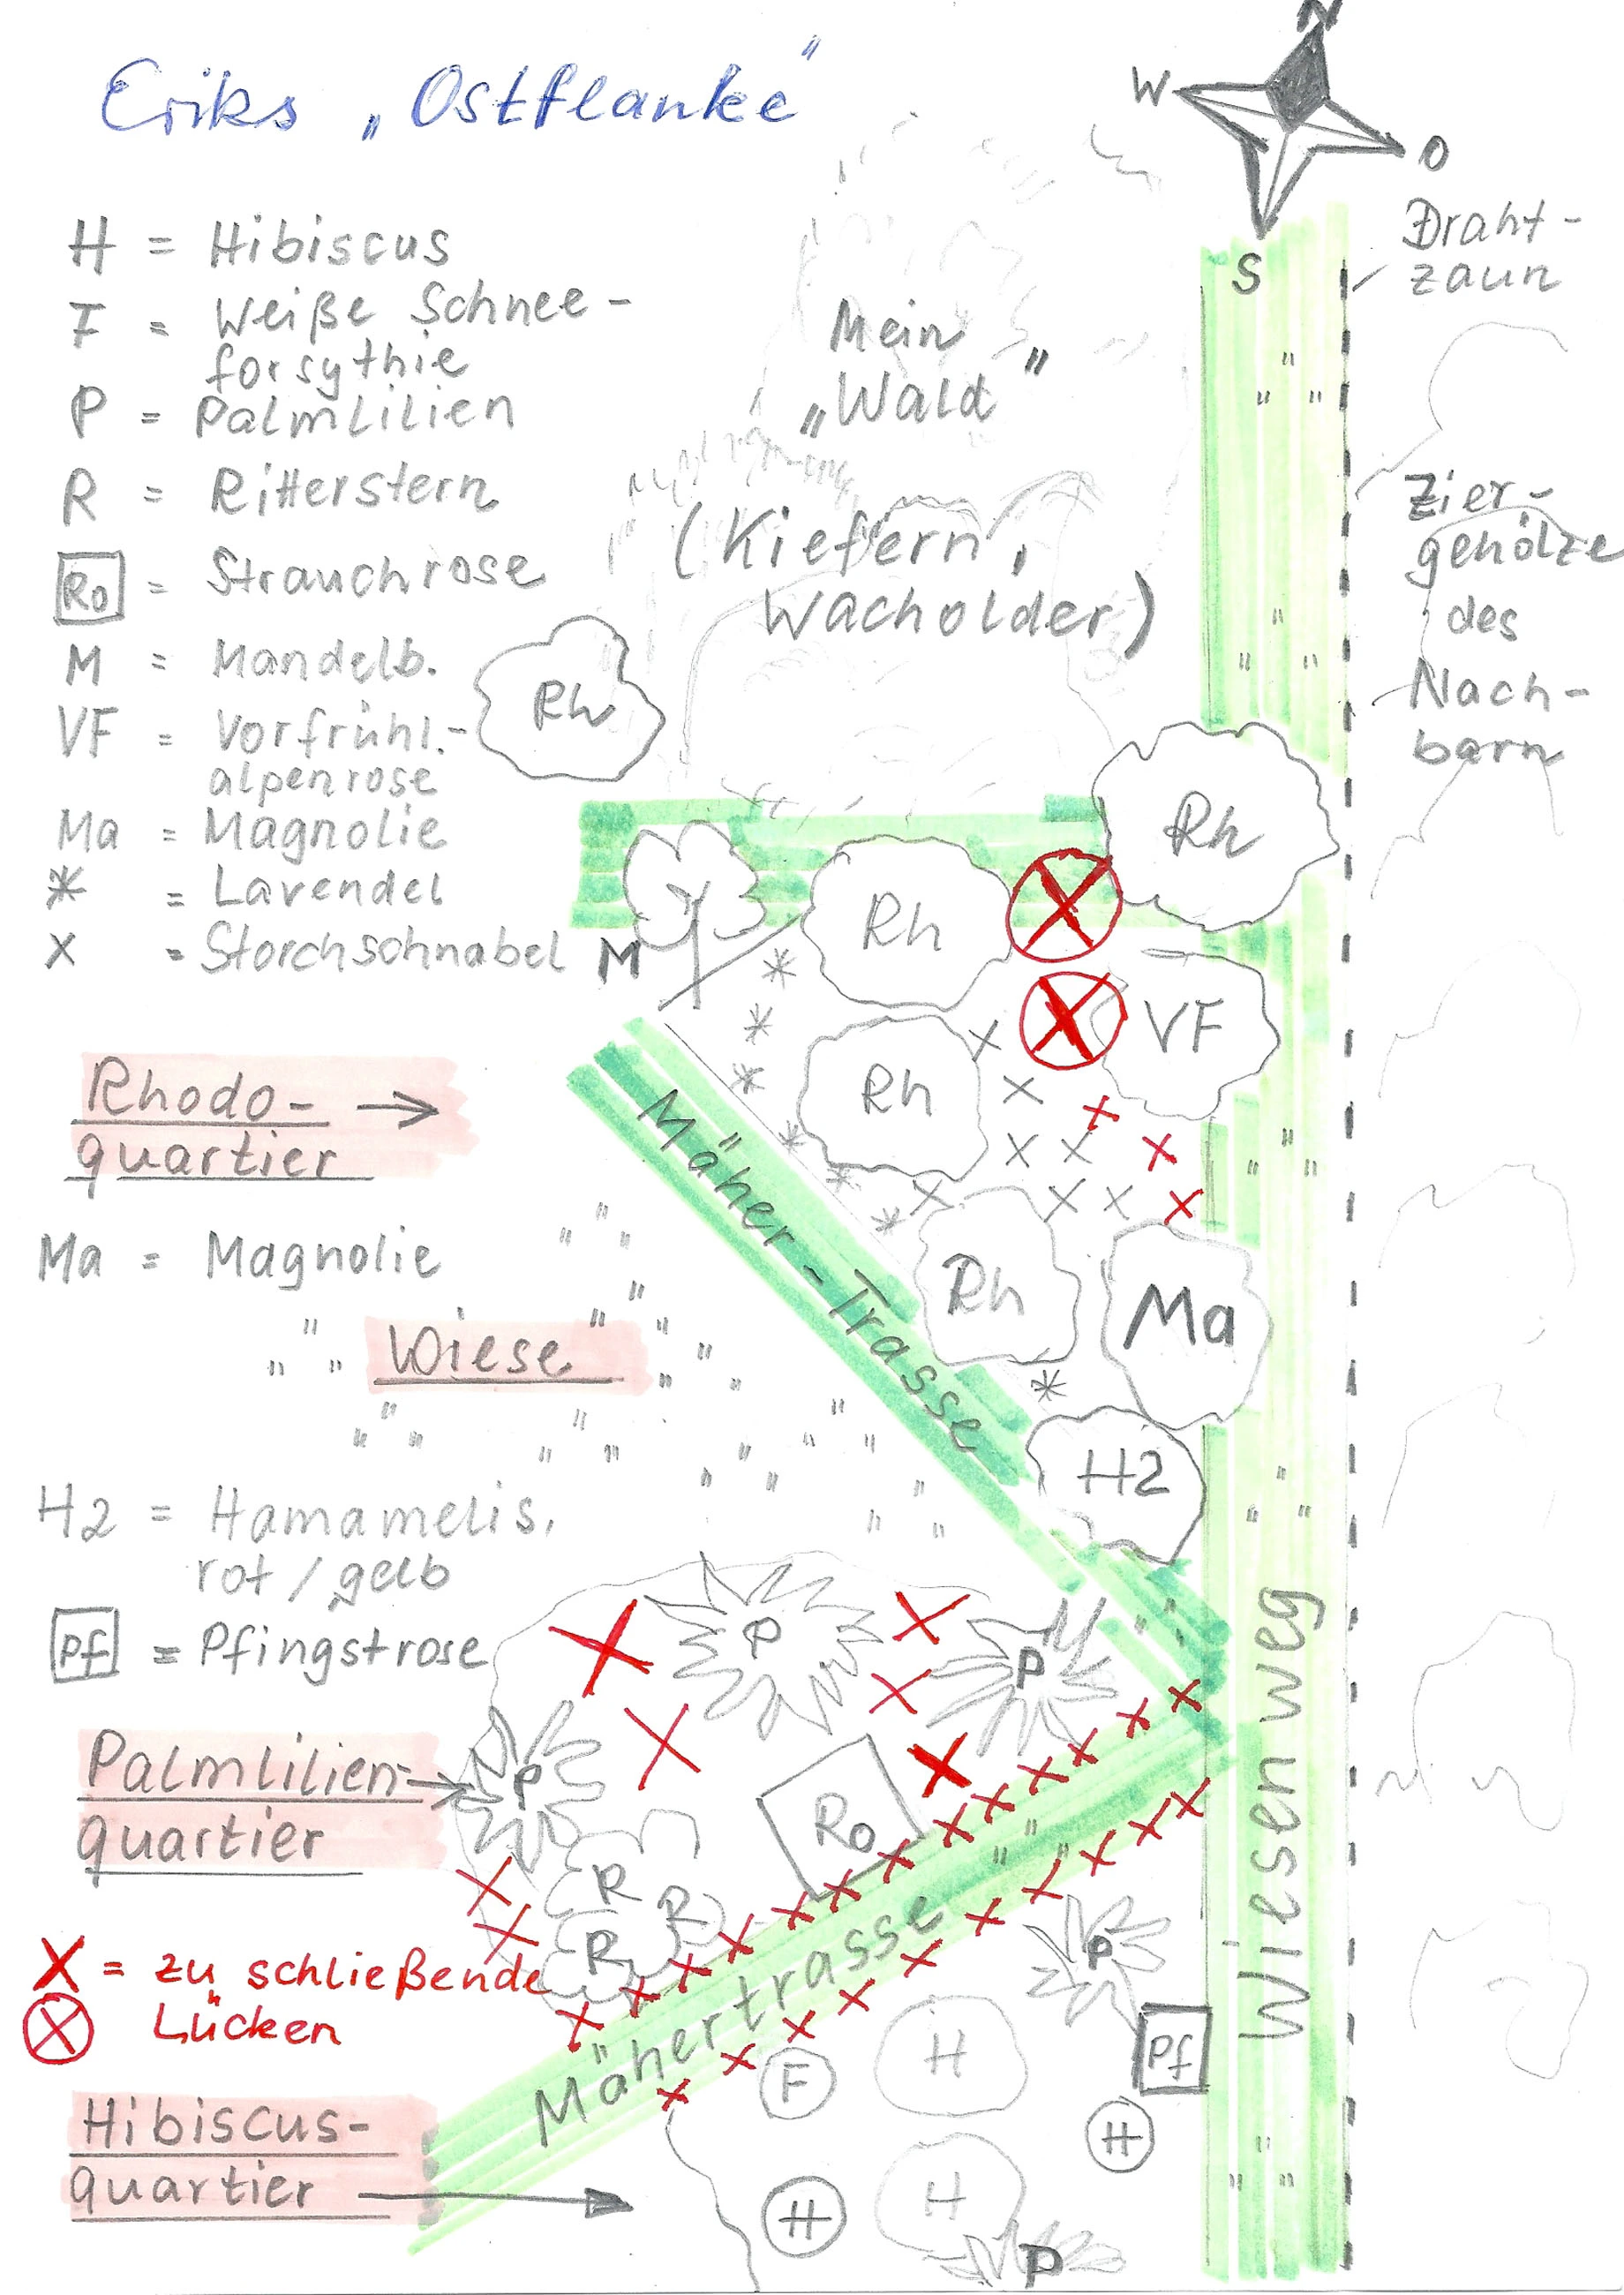 Eriks „Ostflanke"
N
W
O
S
Draht-
zaun
H = Hibiscus
F = Weiße Schnee-
forsythie
P = Palmlilien
R = Ritterstern
Ro = Strauchrose
M = Mandelb.
VF = Vorfrühl.-
alpenrose
Ma = Magnolie
* = Lavendel
x = Storchschnabel
Mein
„Wald"
(Kiefern,
Wacholder)
Zier-
gehölze
des
Nach-
barn
Rh
Rh
Rh
M
VF
Rh
Rhodo-
quartier
Mäher-Trasse
Rh
Ma
Ma = Magnolie
Wiese
H2
H2 = Hamamelis,
rot / gelb
Pf = Pfingstrose
P
P
P
Palmlilien-
quartier
Ro
R
R
R
Wiesenweg
X = zu schließende
⊗ Lücken
Mähertrasse
P
Pf
F
H
H
Hibiscus-
quartier
H
H
P